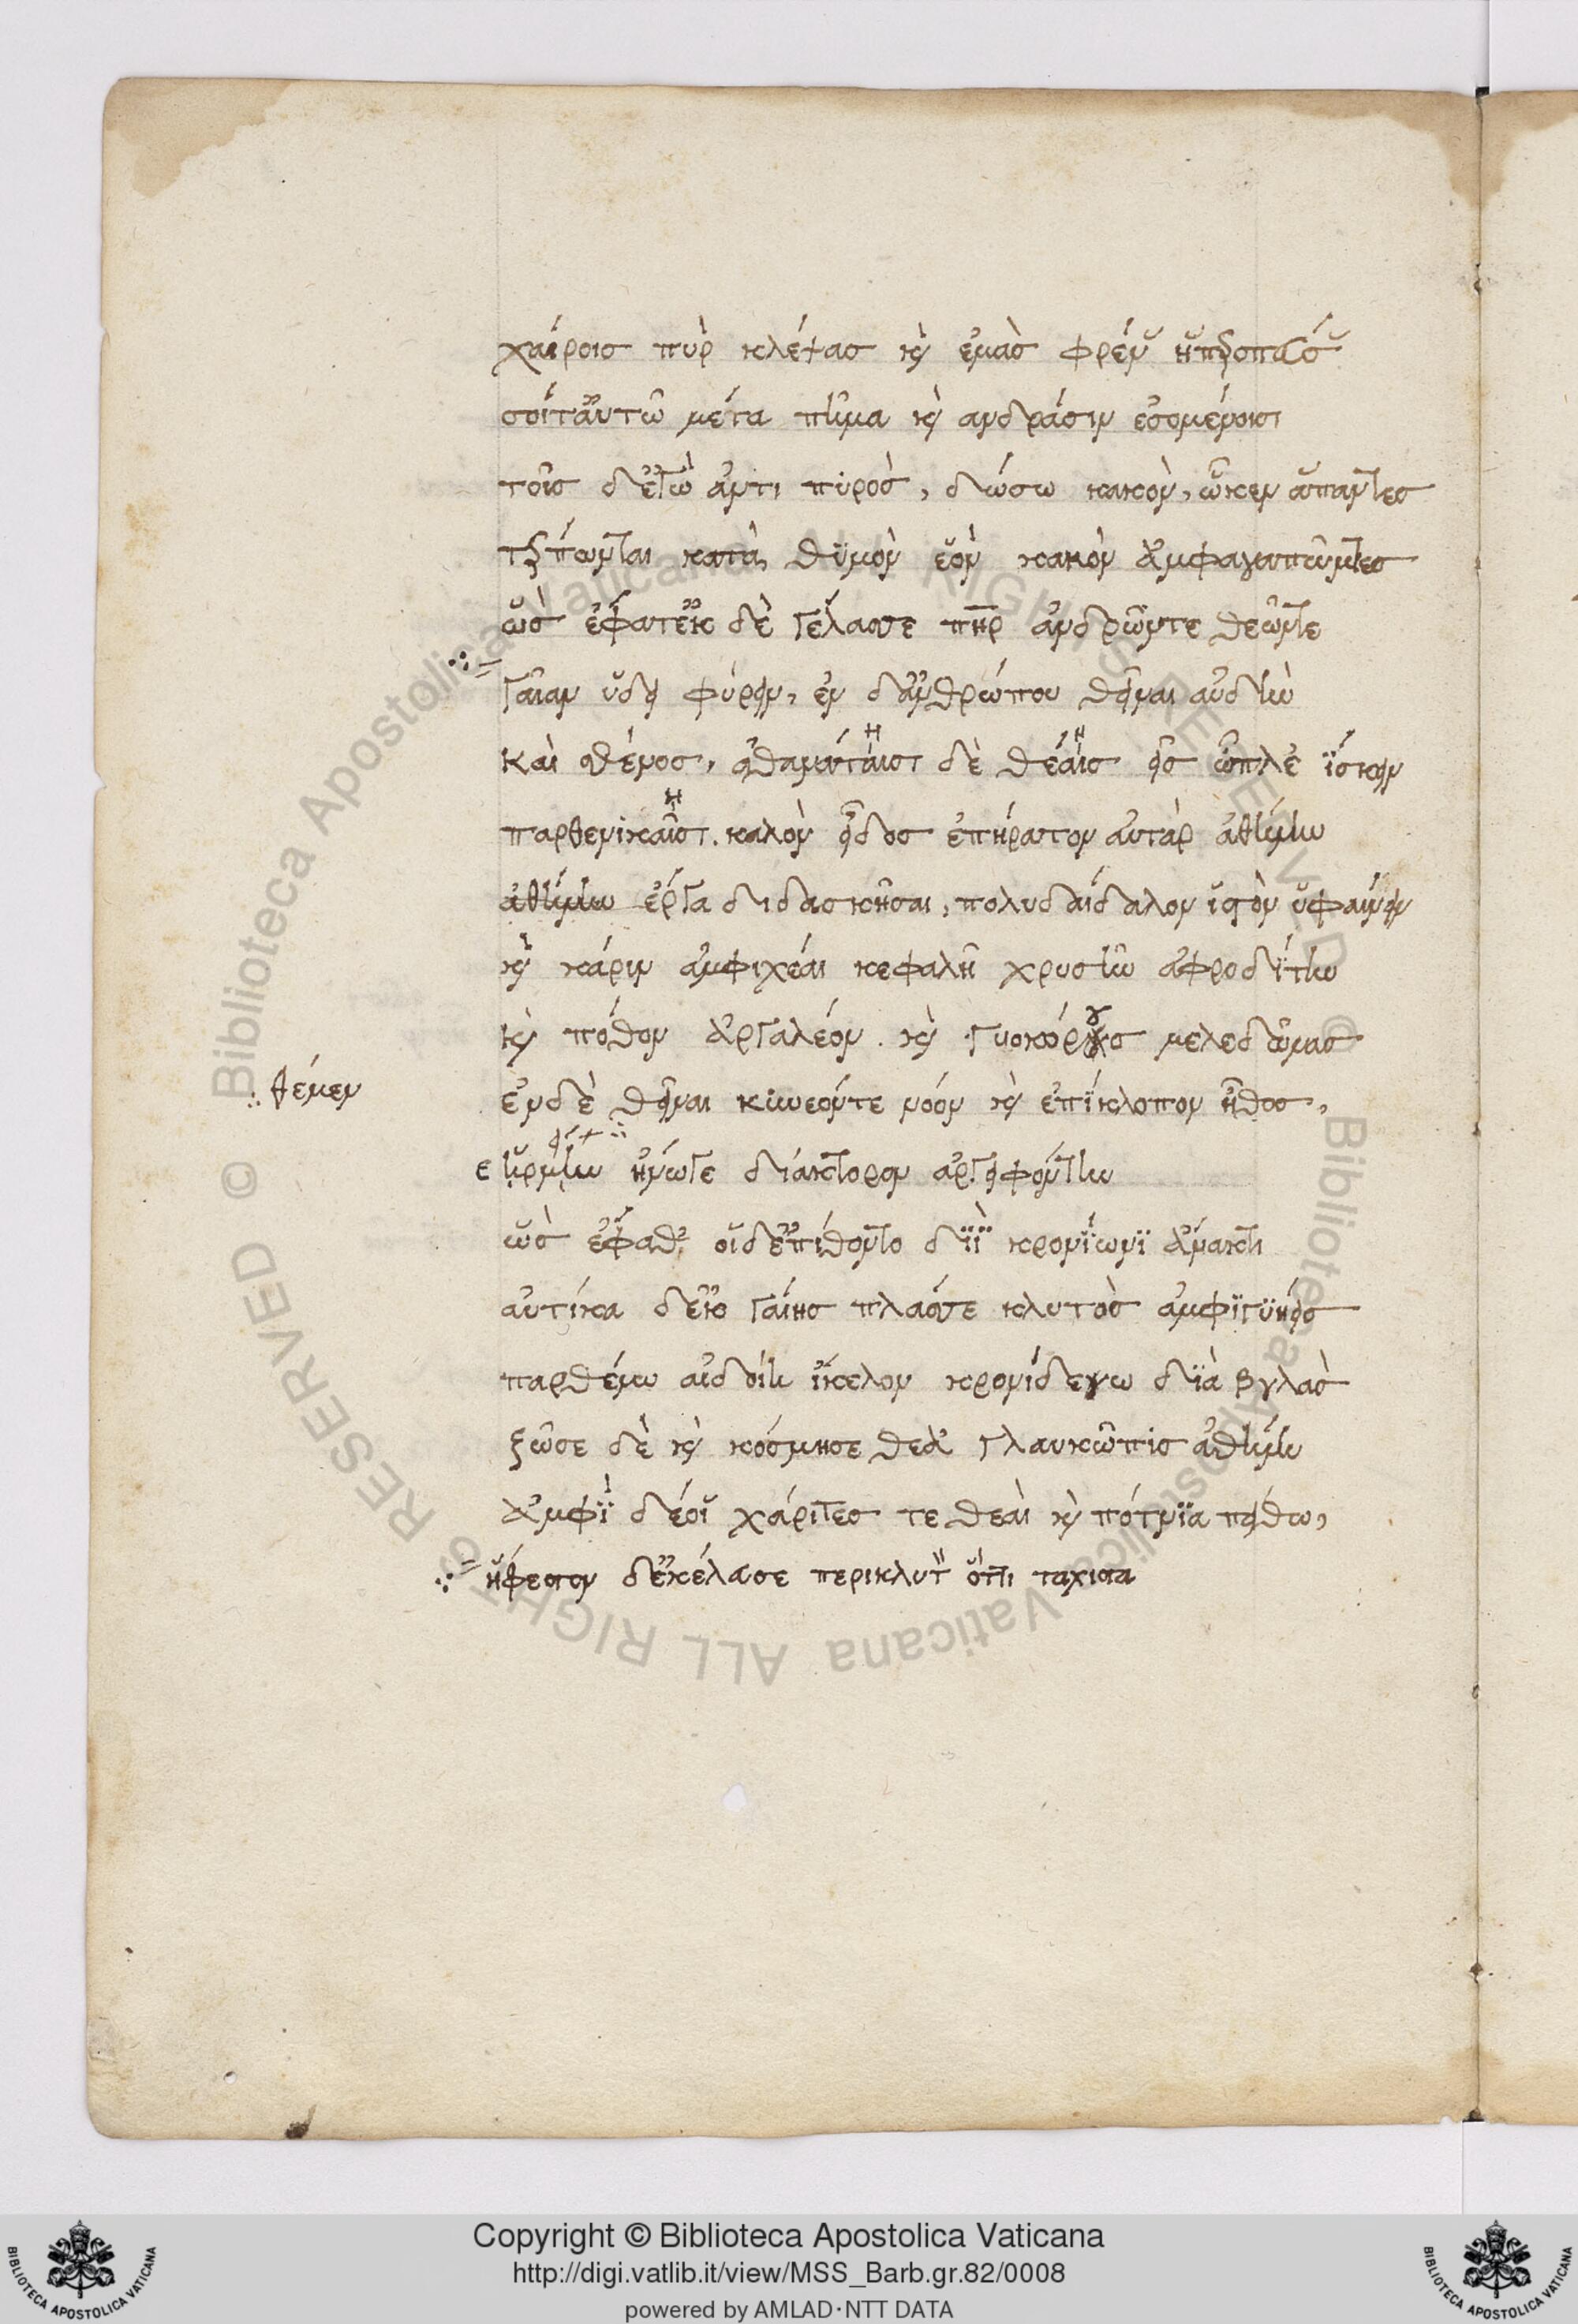 χαίροις πῦρ κλέψας κὶ ἐμὰς φρέν ἠπεροπεύσ
σοίτἀυτῶ μέτα πῆμα κὶ ανδράσιν ἐσομένοισι
τοῖς δἐγὼ ἀντι πύρὸς, δώσω κακὸν, ὧκεν ἅπαντες
τέρπωνται κατὰ θϋμὸν ἑὸν κακὸν ἀμφαγαπῶντες
ὣσ ἐφατἐκ δὲ γέλασσε πηρ ἀνδρῶντε θεῶντε
γαῖαν ὕδει φύρειν, ἐν δἀνθρώπου θεῖναι αὐδὴν
καὶ σθένος, ἀθανάταισ δὲ θεάισ εἰσ ὦπλὲ ΐσκειν
η η
παρθενικαῖσ. καλὸν εἶδος ἐπήρατον αὐτὰρ ἀθήνην
η
ἀθήνην ἐργα διδασκῆσαι, πολυδαίδαλον ἱστὸν ὑφαίνειν
κὶ χάριν ἀμφιχέαι κεφαλῆ χρυσῆν ἀφροδΐτην
κὶ πόθον ἀργαλέον. κὶ γυοκόρους μελεδῶνασ
: θέμεν
ἐνδὲ θεῖναι κύνεόντε νόον κὶ ἐπίκλοπον ἦθος,
ε ἡρμῆν ἠνώγε διάκτορον ἀργειφόντην
ὣσ ἐφαθ, οἱδἐπίθοντο διῒ κρονΐωνϊ ἄνακτι
αὐτίκα δἐκ γαίης πλάσσε κλυτὸσ ἀμφϊγϋήεισ
παρθένω αἰδοίη ἴκελον κρονίδεω δϊὰ βγλὰσ
ζῶσε δὲ κὶ κόσμησε θεὰ γλαυκῶπις ἀθήνη
ἀμφῒ δέοἱ χάριτεσ τε θεὰι κὶ πότνϊα πειθω,
ἥφεστον δἐκέλευσε περικλυτ ὅττι ταχιστα
Copyright © Biblioteca Apostolica Vaticana
http://digi.vatlib.it/view/MSS_Barb.gr.82/0008
powered by AMLAD·NTT DATA